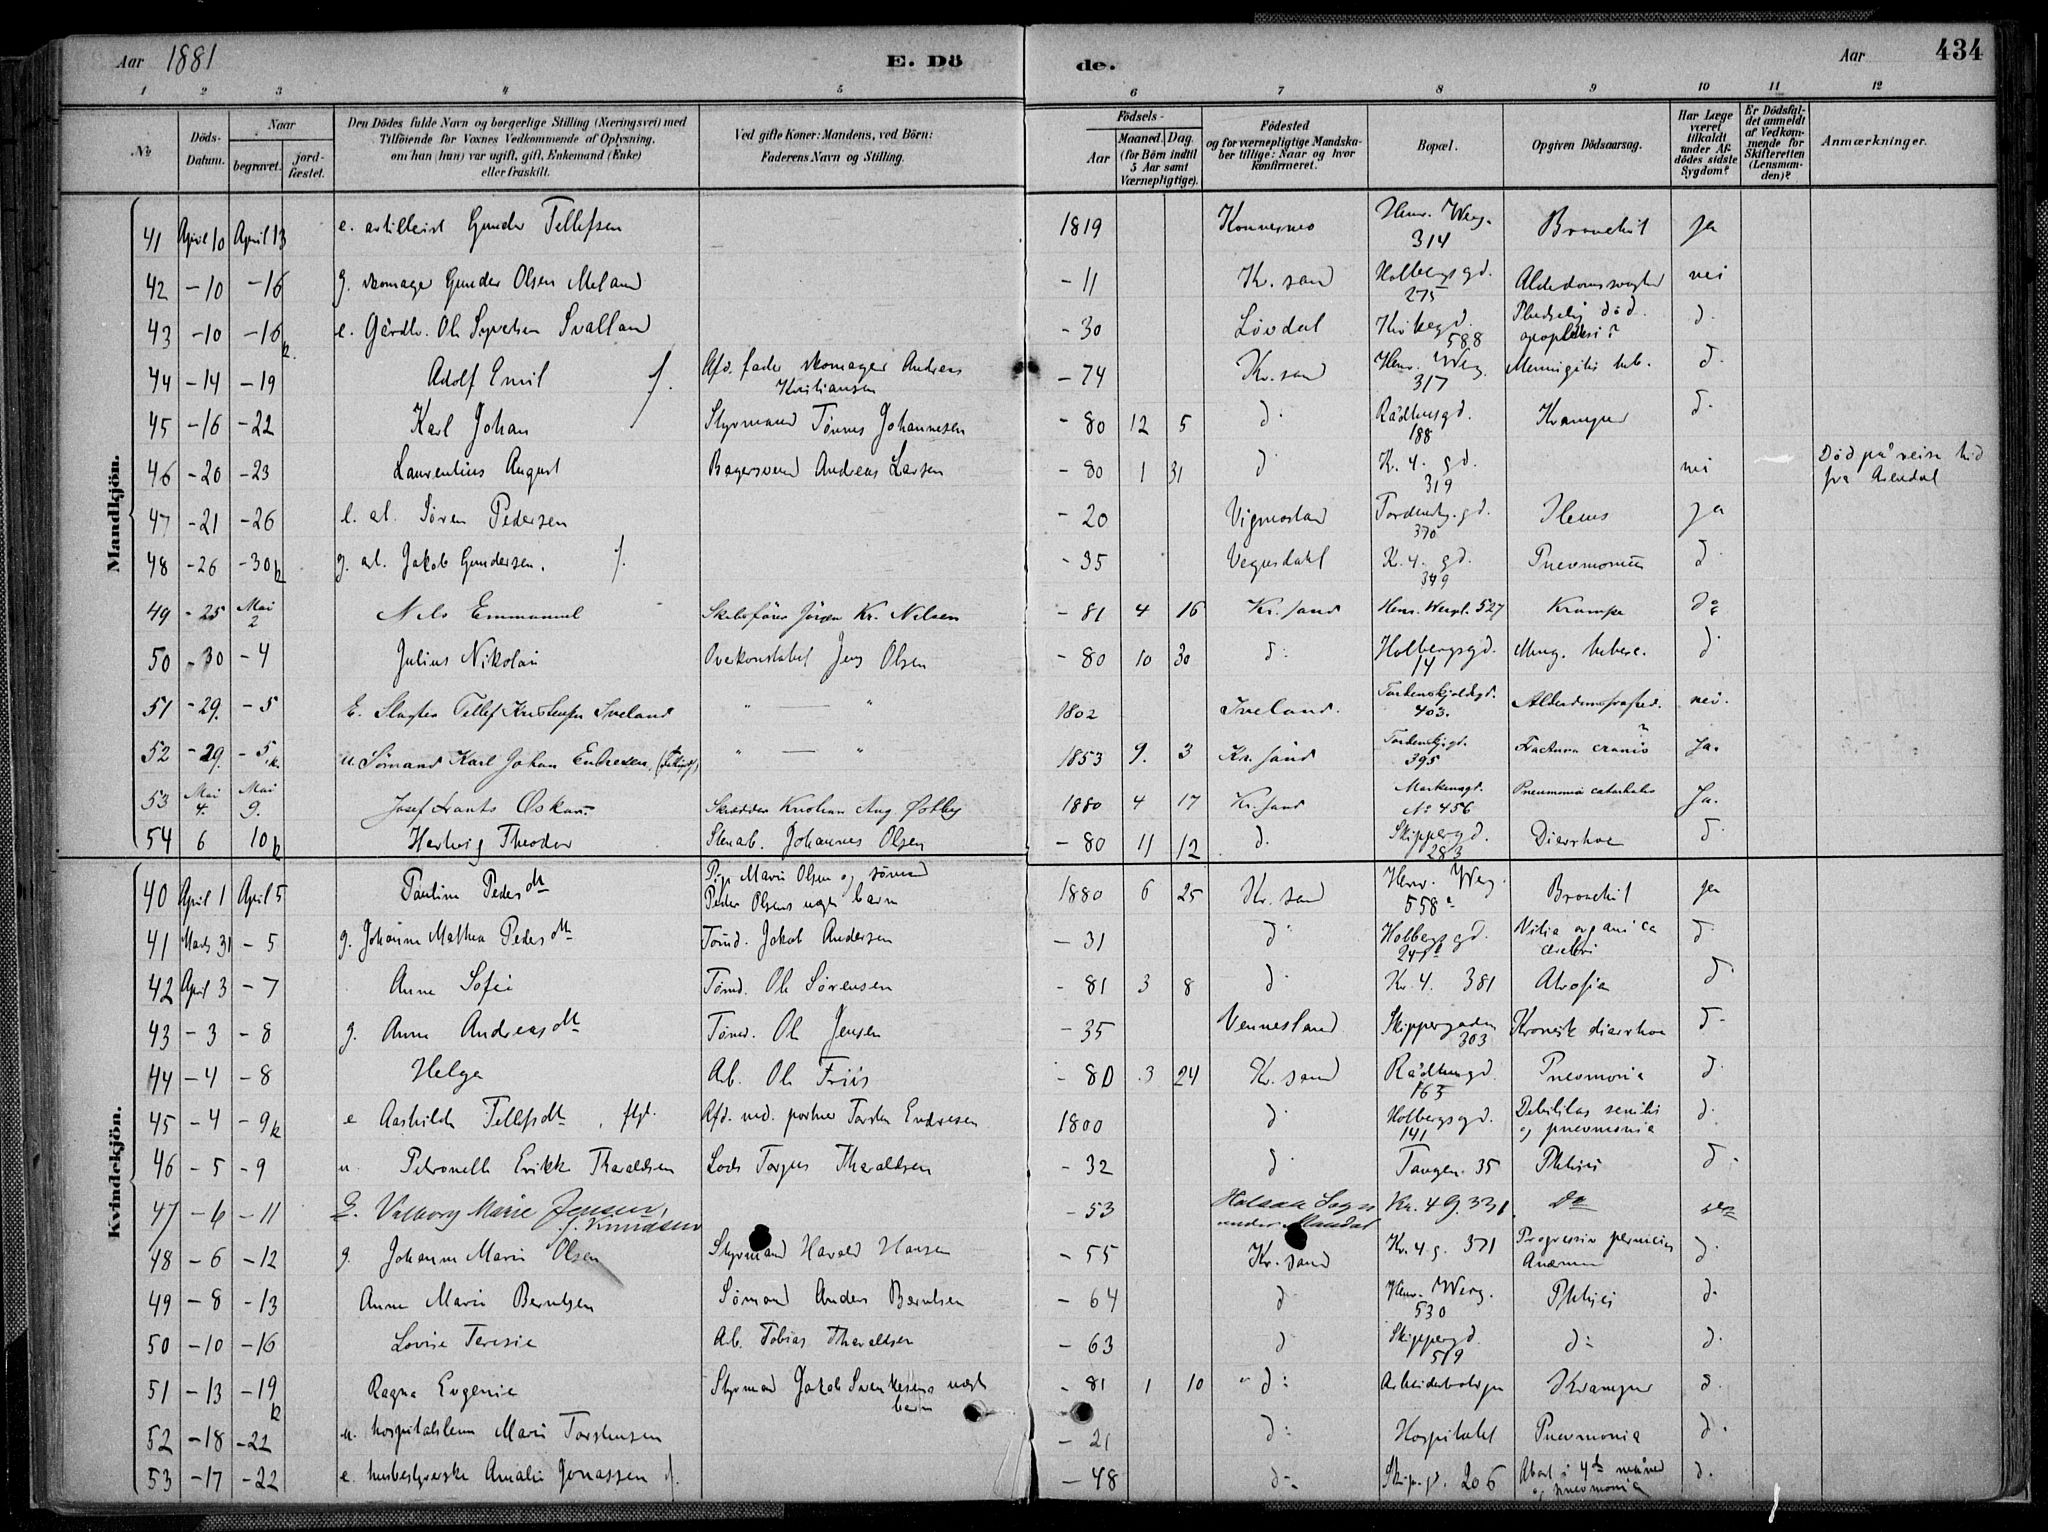 Aar 1881 E. Dö de. Aar 434
1 2 3 4 5 6 7 8 9 10 11 12
№ Döds-Datum. Naar begravet. jordfæstet. Den Dödes fulde Navn og borgerlige Stilling (Næringsvei) med Tilföiende for Voxnes Vedkommende af Oplysning, om han (hun) var ugift, gift, Enkemand (Enke) eller fraskilt. Ved gifte Koner: Mandens, ved Börn: Faderens Navn og Stilling. Födsels- Aar Maaned. Dag. (for Börn indtil 5 Aar samt Værnepligtige). Födested og for værnepligtige Mandskaber tillige: Naar og hvor konfirmeret. Bopæl. Opgiven Dödsaarsag. Har Læge været tilkaldt under Afdödes sidste Sygdom? Er Dödsfaldet anmeldt af Vedkommende for Skifteretten (Lensmanden)? Anmærkninger.
Mandkjön.
41 April 10 April 13 e. artillerist Gunder Tellefsen 1819 Henr. Werg. 314 Bronchit ja
42 -10 -16 g. skomager Gunder Olsen Meland -11 Kr. sand Holbergsgd. 275 nei
43 -10 -16 k. e. Gårdbr. Ole Syvertsen Svalland -30 Lövdal Kirkegd. 588 Pludselig död. apopleksi? d.
44 -14 -19 Adolf Emil f. Afd. fader skomager Andreas Kristiansen -74 Kr. sand Henr. Werg. 317 Meningitis tub. d
45 -16 -22 Karl Johan Styrmand Tönnes Johannesen -80 12 5 d Rådhusgd. 188 Kramper d.
46 -20 -23 Laurentius August Bagersvend Andreas Larsen -80 1 31 d K. 4. gd. 319 nei Död på reise hid fra Arendal
47 -21 -26 e. al. Sören Pedersen -20 Vigmostad Tordenskj. gd. 370 Ileus ja
48 -26 -30 k g. al. Jakob Gundersen. f. -35 Vegusdahl K. 4. gd. 349 d
49 -25 Mai 2 Nils Emmanuel Skibsförer Jörgen Kr. Nilsen -81 4 16 Kr. sand Henr. Wergl. 527 Krampe do
50 -30 -4 Julius Nikolai Overkonstabel Jens Olsen -80 10 30 d: Holbergsgd. 14 d
51 -29. -5 E. Slagter Tellef Kristensen Iveland " — " 1802 Iveland. Tordenskjoldsgd. 403. nei.
52 -29. -5 k. u. Sömand Karl Johan Endresen " — " 1853 9. 3 Kr. sand Tordenskj.gd. 395 Fractura cranii Ja.
53 Mai 4. Mai 9. Josef Frants Oskar Skrædder Kristian Aug. Östby 1880 4 17 Kr. sand Markensgd. No 456 Pneumonia catarhalis Ja.
54 6 10 k Hartvig Theodor Stenarb. Johannes Olsen -80 11 12 d. Skippergd. 283 Diarrhoe d
Kvindekjön.
40 April 1 April 5 Pauline Pedersdtr Pige Marie Olsen og sömand Peder Olsens uægte barn 1880 6 25 Kr. sand Henr. Werg. 558 Bronchit ja
41 Marts 31 -5 g. Johanne Mathea Pedersdtr Tömd. Jakob Andersen -31 d Holbergsgd. Vitia organica cerebri d
42 April 3 -7 Anne Sofie Tömd. Ole Sörensen -81 3 8 d Kr. 4. 381 Atrofia d
43 -3 -8 g. Anne Andreasdtr Tömd. Ole Jensen -35 Vennesland Skippergaden 303 Kronisk diarrhoe d
44 -4 -8 Helga Arb. Ole Friis -80 3 24 Kr. sand Rådhusgd. 165 Pneumonia d
45 -4 -9 k e Aashilde Tellefsdtr, flgt. Afd. ved. portner Torsten Endresen 1800 d Holbergsgd. 141 Debilitas senilis og pneumonia d.
46 -5 -9 u. Petronelle Erikke Tharaldsen Lods Torgus Tharaldsen -32 d Tangen 35 Phthisis d
47 -6 -11 E. Valborg Marie Jensen, f. Knudsen -53 Halsaa Sogn under Mandal Kr. 4 G. 331 Do
48 -6 -12 g. Johanne Marie Olsen Styrmand Harald Hansen -55 Kr. sand Kr. 4. g. 371 Progressiv perniciös Anæmi d.
49 -8 -13 Anne Marie Berntsen Sömand Anders Berntsen -64 d Henr. Werg. 530 Phthisis d.
50 -10 -16 Lovise Teresie Arb. Tobias Tharaldsen -63 d Skippergd. 519 d: d.
51 -13 -19 k Ragna Eugenie Styrmand Jakob uægte barn -81 1 10 d: Arbeiderboliger Kramper d.
52 -18 -22 u. hospitalslem Marie Torstensen -21 d: Hospitalet Pneumonia d.
53 -17 -22 e. husbestyrerske Amalie Jonassen f. -48 d: Skip. gd. 206 Abort i 4de måned og pneumonia d.